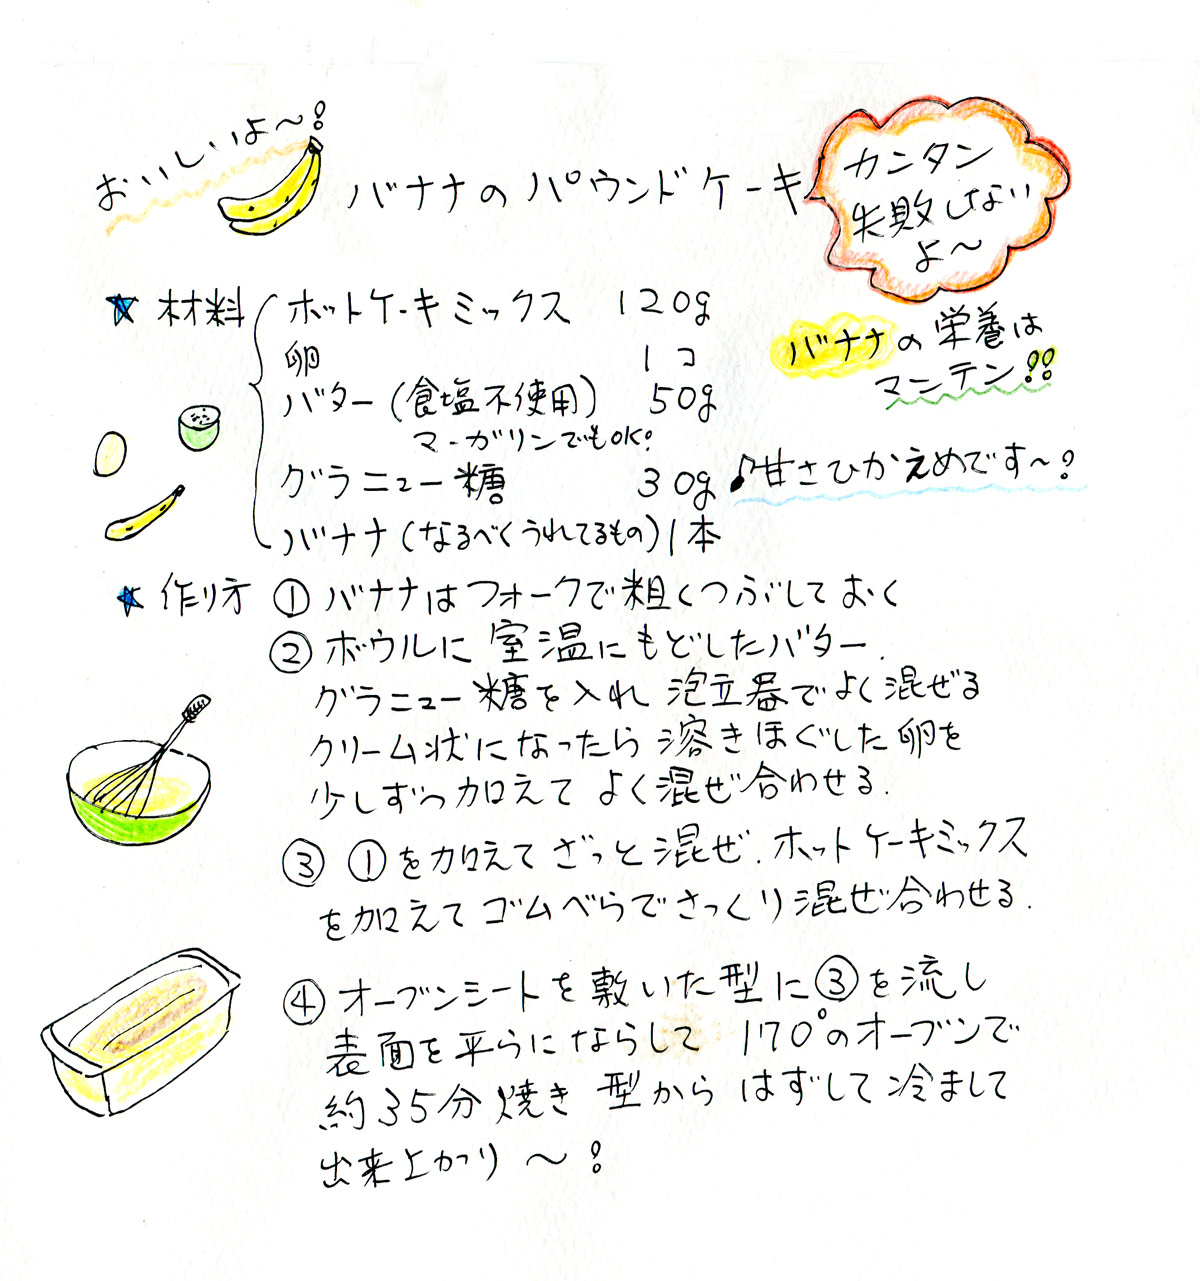 おいしいよ〜!
バナナのパウンドケーキ
カンタン
失敗しない
よ〜
★ 材料
ホットケーキミックス 120g
卵 1コ
バター(食塩不使用) 50g
マーガリンでもOK!
グラニュー糖 30g
バナナ(なるべくうれてるもの) 1本
バナナの栄養は
マンテン!!
♪甘さひかえめです〜!
★ 作り方 ① バナナはフォークで粗くつぶしておく
② ボウルに室温にもどしたバター、
グラニュー糖を入れ泡立器でよく混ぜる
クリーム状になったら溶きほぐした卵を
少しずつ加えてよく混ぜ合わせる.
③ ①を加えてざっと混ぜ、ホットケーキミックス
を加えてゴムべらでさっくり混ぜ合わせる.
④ オーブンシートを敷いた型に③を流し
表面を平らにならして 170°のオーブンで
約35分焼き 型からはずして冷まして
出来上がり〜!